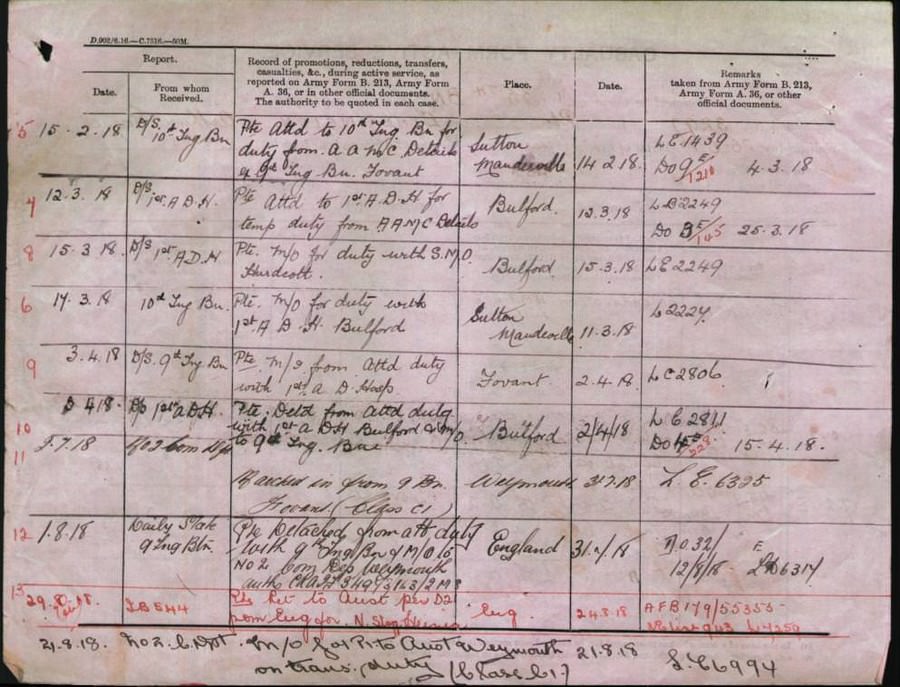 D.902/6.16.—C.7516.—50M.
Report.
Date.
From whom
Received.
Record of promotions, reductions, transfers,
casualties, &c., during active service, as
reported on Army Form B. 213, Army Form
A. 36, or in other official documents.
The authority to be quoted in each case.
Place.
Date.
Remarks
taken from Army Form B. 213,
Army Form A. 36, or other
official documents.
5 15.2.18
D/S.
10th Trg Bn
Pte Attd to 10th Trg Bn for
duty from A A M C Details
Trg Bn. Fovant
Sutton
Mandeville
14 2.18
LE1439
4.3.18
12.3.18
D/S.
1st A D.H.
Pte Attd to 1st A.D.H for
temp duty from AAMC Details
Bulford.
12.3.18
2249
25.3.18
8 15.3.18.
D/S 1st A.D.H
Pte. M/O for duty with S.M.O.
Hurdcott.
Bulford
15.3.18
LE2249
6 14.3.18
10th Trg Bn.
Pte. M/O for duty with
1st A D.H. Bulford
Sutton
Mandeville
11.3.18
9 3.4.18
D/S. 9th Trg Bn
Pte M/I from Attd duty
with 1st A D Hosp
Fovant.
2.4.18
2806
10
1st A D.H.
Pte. Detd from Attd duty
with 1st A D H Bulford & M/O
to 9th Trg. Bn
Bulford
2/4/18
15.4.18.
11 7.18
No 2 Com
Marched in from 9 Bn.
Fovant (Class C1)
Weymouth
L.E. 6325
12 1.8.18
Daily State
9 Trg Btn.
Pte Detached from att duty
with 9th Trg Bn & M/O to
No 2 Com Dep Weymouth
England
12/8/18
6317
13
to Aust per D2
from Eng for
Eng
24.8.18
AFB179/
21.8.18.
No 2. C. Dpt.
M/O for R. to Aust Weymouth
on trans. duty (Class C1.)
21.8.18
L.E6994